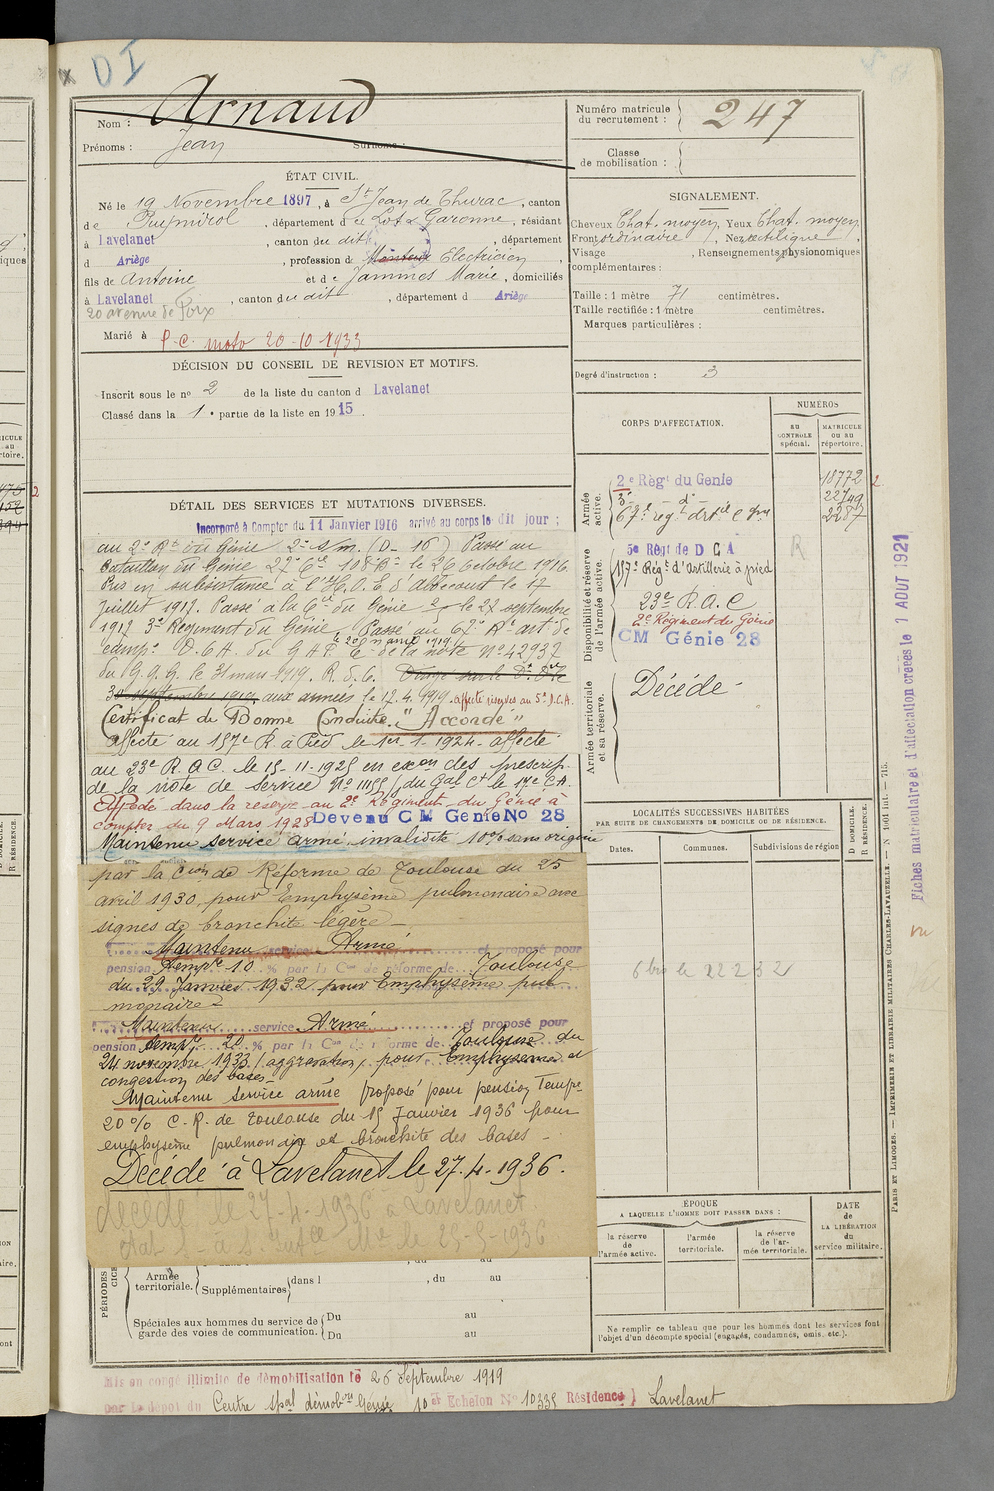 DI
Nom : Arnaud
Prénoms : Jean Surnoms :
Numéro matricule du recrutement : 247
Classe de mobilisation :
ÉTAT CIVIL.
Né le 19 Novembre 1897, à St Jean de Thurac, canton
de Puymirol, département du Lot & Garonne, résidant
à Lavelanet, canton du dit, département
d Ariège, profession de Electricien
fils de Antoine et de Jammes Marie, domiciliés
à Lavelanet, canton du dit, département d Ariège
20 avenue de Foix
Marié à P.C. moto 20-10-1933
SIGNALEMENT.
Cheveux Chat. moyen, Yeux Chat. moyen,
Front ordinaire, Nez rectiligne,
Visage , Renseignements physionomiques
complémentaires :
Taille : 1 mètre 71 centimètres.
Taille rectifiée : 1 mètre centimètres.
Marques particulières :
Degré d'instruction : 3
DÉCISION DU CONSEIL DE REVISION ET MOTIFS.
Inscrit sous le no 2 de la liste du canton d Lavelanet
Classé dans la 1e partie de la liste en 1915.
CORPS D'AFFECTATION.
NUMÉROS
AU CONTROLE spécial.
MATRICULE OU AU répertoire.
Armée active.
2e Règt du Génie 18772
3e d° 22749
67e régt d'artie 2287
Disponibilité et réserve de l'armée active.
5e Règt de D C A
157e Régt d'Artillerie à pied
R
23e R.A.C
2e Régiment du Génie
CM Génie 28
Armée territoriale et sa réserve.
Décédé
DÉTAIL DES SERVICES ET MUTATIONS DIVERSES.
Incorporé à Compter du 11 Janvier 1916 arrivé au corps le dit jour ;
au 2e Rt du Génie 2e s/m. (D-16) Passé au
bataillon du Génie 22e Cie 108 Bon le 26 octobre 1916.
Pris en subsistance à l'H.O.E d'Abbecourt le 17
Juillet 1917. Passé à la Cie du Génie le 22 septembre
1917 3e Régiment du Génie. Passé au 67e Rt art de
le 20 mars 1919
camp. D.C.A. du G.A.F. de la note No 42932
du G.Q.G. le 31 mars 1919. R.d.C.
30 septembre 1919, aux armées le 12.4.1919. affecté réserves au 5e D.C.A.
Certificat de Bonne Conduite "Accordé"
affecté au 157e R. à Pied le 1er-1-1924. affecté
au 23e R.A.C. le 15-11-1925 en exon des prescrip.
de la note de service No 1115/ du Gal Ct le 17e C.A.
Affecté dans la réserve au 2e Régiment du Génie à
compter du 9 Mars 1928 Devenu CM Génie No 28
Maintenu service armé, invalidité 10% sans origine
par la Cion de Réforme de Toulouse du 25
avril 1930, pour Emphysème pulmonaire avec
signes de bronchite légère
Maintenu service Armé et proposé pour
pension tempre 10 % par la Cion de réforme de Toulouse
du 29 Janvier 1932 pour Emphysème pul
monaire
Maintenu service Armé et proposé pour
pension tempr. 20 % par la Cion de réforme de Toulouse du
24 novembre 1933 (aggravation) pour Emphysème et
congestion des bases
Maintenu service armé proposé pour pension Tempe
20% C.R. de Toulouse du 15 Janvier 1936 pour
emphysème pulmonaire et bronchite des bases
Décédé à Lavelanet le 27-4-1936.
décédé le 27-4-1936 à Lavelanet
LOCALITÉS SUCCESSIVES HABITÉES
PAR SUITE DE CHANGEMENTS DE DOMICILE OU DE RÉSIDENCE.
Dates. Communes. Subdivisions de région
D DOMICILE. R RÉSIDENCE.
ÉPOQUE
A LAQUELLE L'HOMME DOIT PASSER DANS :
la réserve de l'armée active.
l'armée territoriale.
la réserve de l'armée territoriale.
DATE de LA LIBÉRATION du service militaire.
Armée territoriale. Supplémentaires dans l , du au
Spéciales aux hommes du service de garde des voies de communication. Du au
Du au
Ne remplir ce tableau que pour les hommes dont les services font
l'objet d'un décompte spécial (engagés, condamnés, omis, etc.).
Mis en congé illimité de démobilisation le 26 Septembre 1919
par le dépôt du Centre spal démobon Génie 10er Echelon No 10335 Résidence) Lavelanet
Fiches matriculaire et d'affectation créées le 7 AOUT 1921
vu
PARIS ET LIMOGES. — IMPRIMERIE ET LIBRAIRIE MILITAIRES CHARLES-LAVAUZELLE. — N 1001 int. — 715.